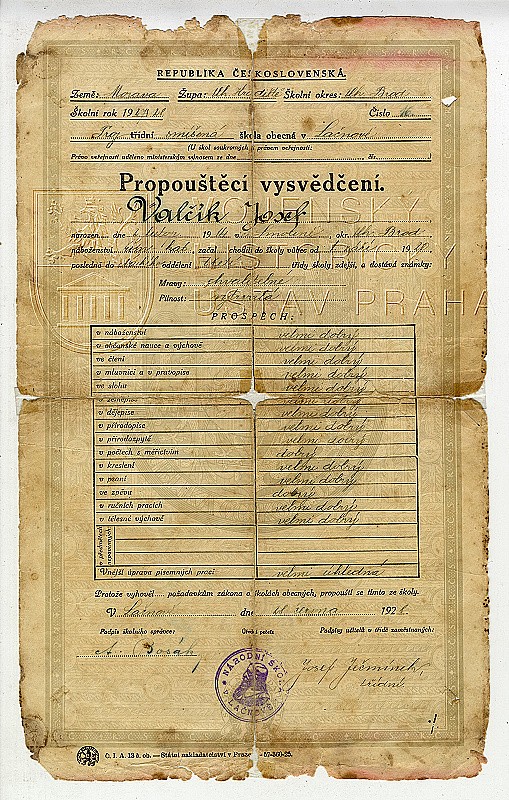 REPUBLIKA ČESKOSLOVENSKÁ.
Země: Morava Župa: Uh. Hradiště Školní okres: Uh. Brod
Školní rok 19 Číslo
Troj třídní smíšená škola obecná v Lačnově
(U škol soukromých s právem veřejnosti:
Právo veřejnosti uděleno ministerským výnosem ze dne Nr. )
Propouštěcí vysvědčení.
Valčík Josef
narozen dne 19 v Smolině okr. Uh. Brod
náboženství, začal choditi do školy vůbec od 19
posledně do oddělení třídy školy zdejší, a dostává známky:
Mravy: chvalitebné
Pilnost: vytrvalá
PROSPĚCH:
v náboženství velmi dobrý
v občanské nauce a výchově velmi dobrý
ve čtení velmi dobrý
v mluvnici a v pravopise velmi dobrý
ve slohu velmi dobrý
v zeměpise velmi dobrý
v dějepise velmi dobrý
v přírodopise velmi dobrý
v přírodozpytě velmi dobrý
v počtech s měřictvím dobrý
v kreslení velmi dobrý
v psaní velmi dobrý
ve zpěvu dobrý
v ručních pracích velmi dobrý
v tělesné výchově velmi dobrý
v předmětech nepovinných
Vnější úprava písemných prací velmi úhledná
Protože vyhověl požadavkům zákona o školách obecných, propouští se tímto ze školy.
V Lačnově dne 28. června 1928
Podpis školního správce: Úřední pečeť Podpisy učitelů v třídě zaměstnaných:
A. Bosák
Josef Ječmínek,
třídní.
NÁRODNÍ ŠKOLA
V LAČNOVĚ
Č. I. A. 13 č. ob. — Státní nakladatelství v Praze 57-360-25.
VOJENSKÝ
ÚSTAV PRAHA